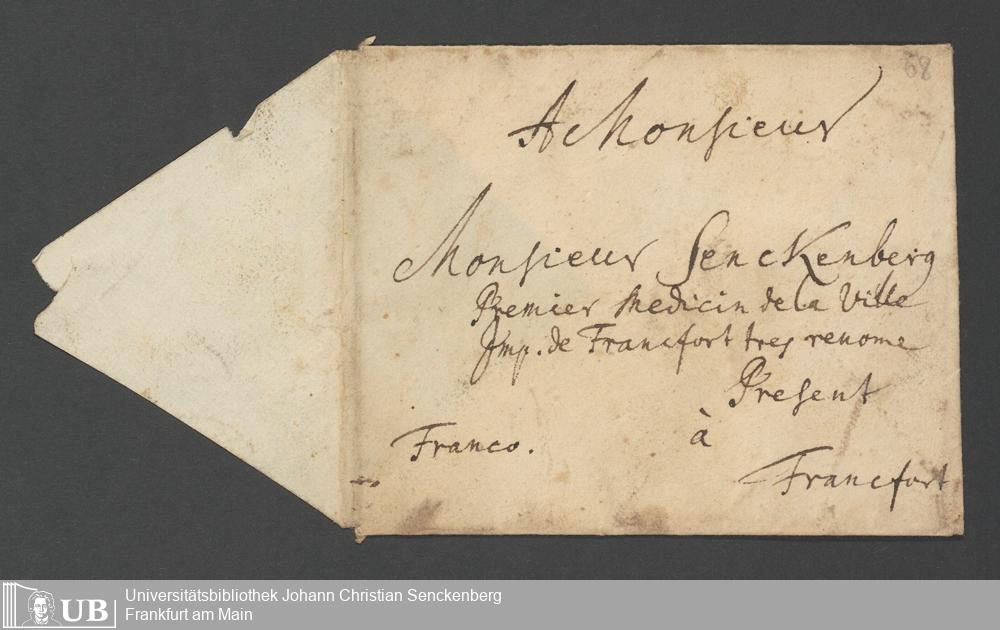 68
A Monsieur
Monsieur Senckenberg
Premier Medicin de la Ville
Imp. de Francfort tres renome
Present
à
Franco.
Francfort
UB
Universitätsbibliothek Johann Christian Senckenberg
Frankfurt am Main